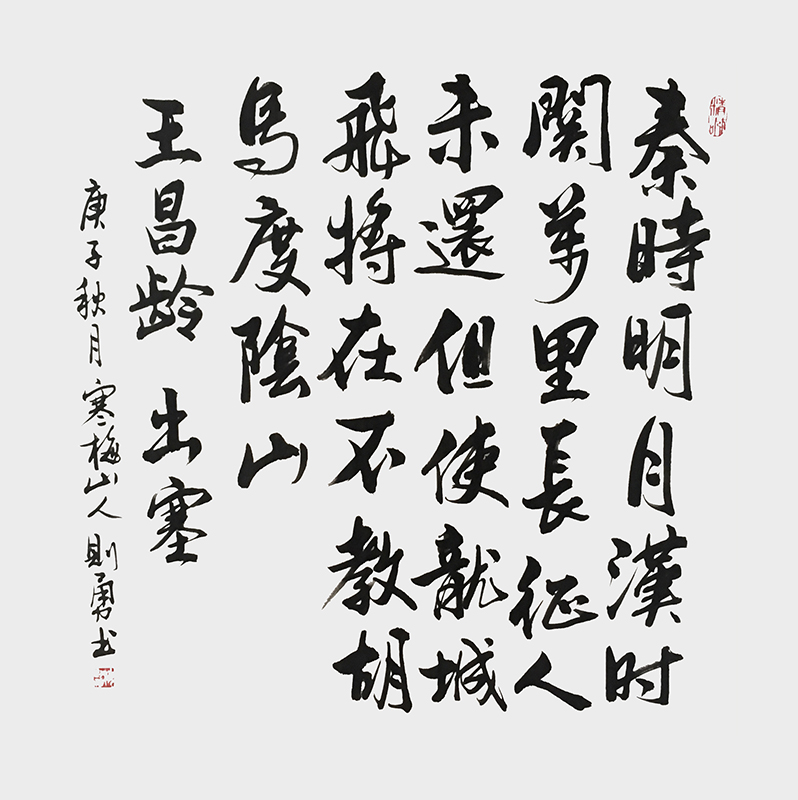 秦時明月漢时
関萬里長征人
未還但使龍城
飛將在不教胡
馬度陰山
王昌龄 出塞
庚子秋月寒梅山人則勇书